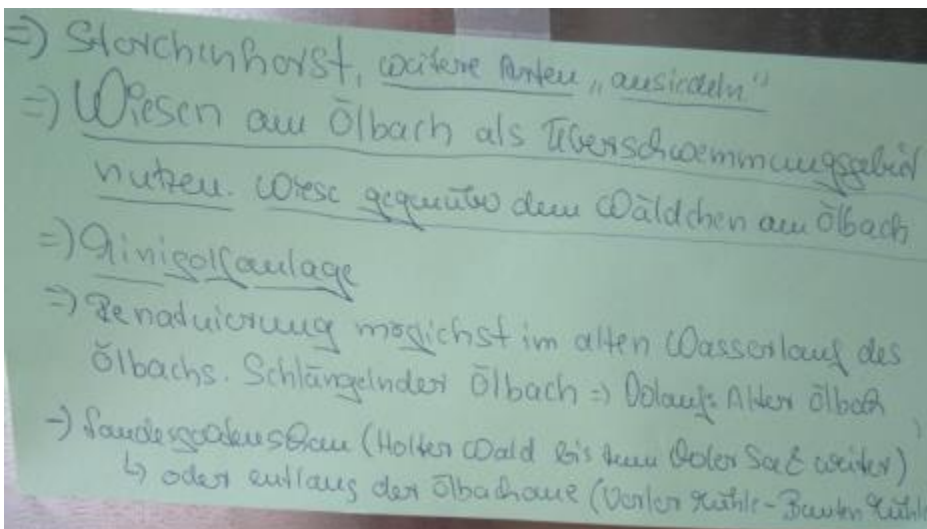 => Storchenhorst, weitere Arten „ansiedeln"
=> Wiesen am Ölbach als Überschwemmungsgebiet
nutzen. Wiese gegenüber dem Wäldchen am Ölbach
=> Minigolfanlage
=> Renaturierung möglichst im alten Wasserlauf des
Ölbachs. Schlängelnder Ölbach => Alter Ölbach
-> (Holter Wald bis zum weiter)
↳ oder entlang der Ölbachaue (Verler Mühle - Mühle